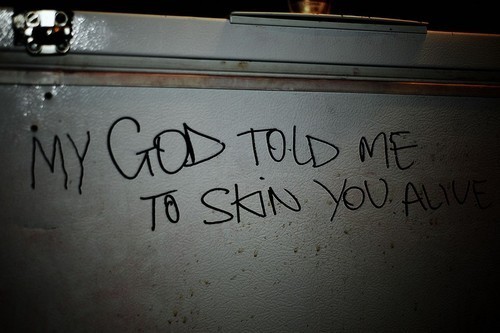 MY GOD TOLD ME
TO SKiN YOU ALIVE